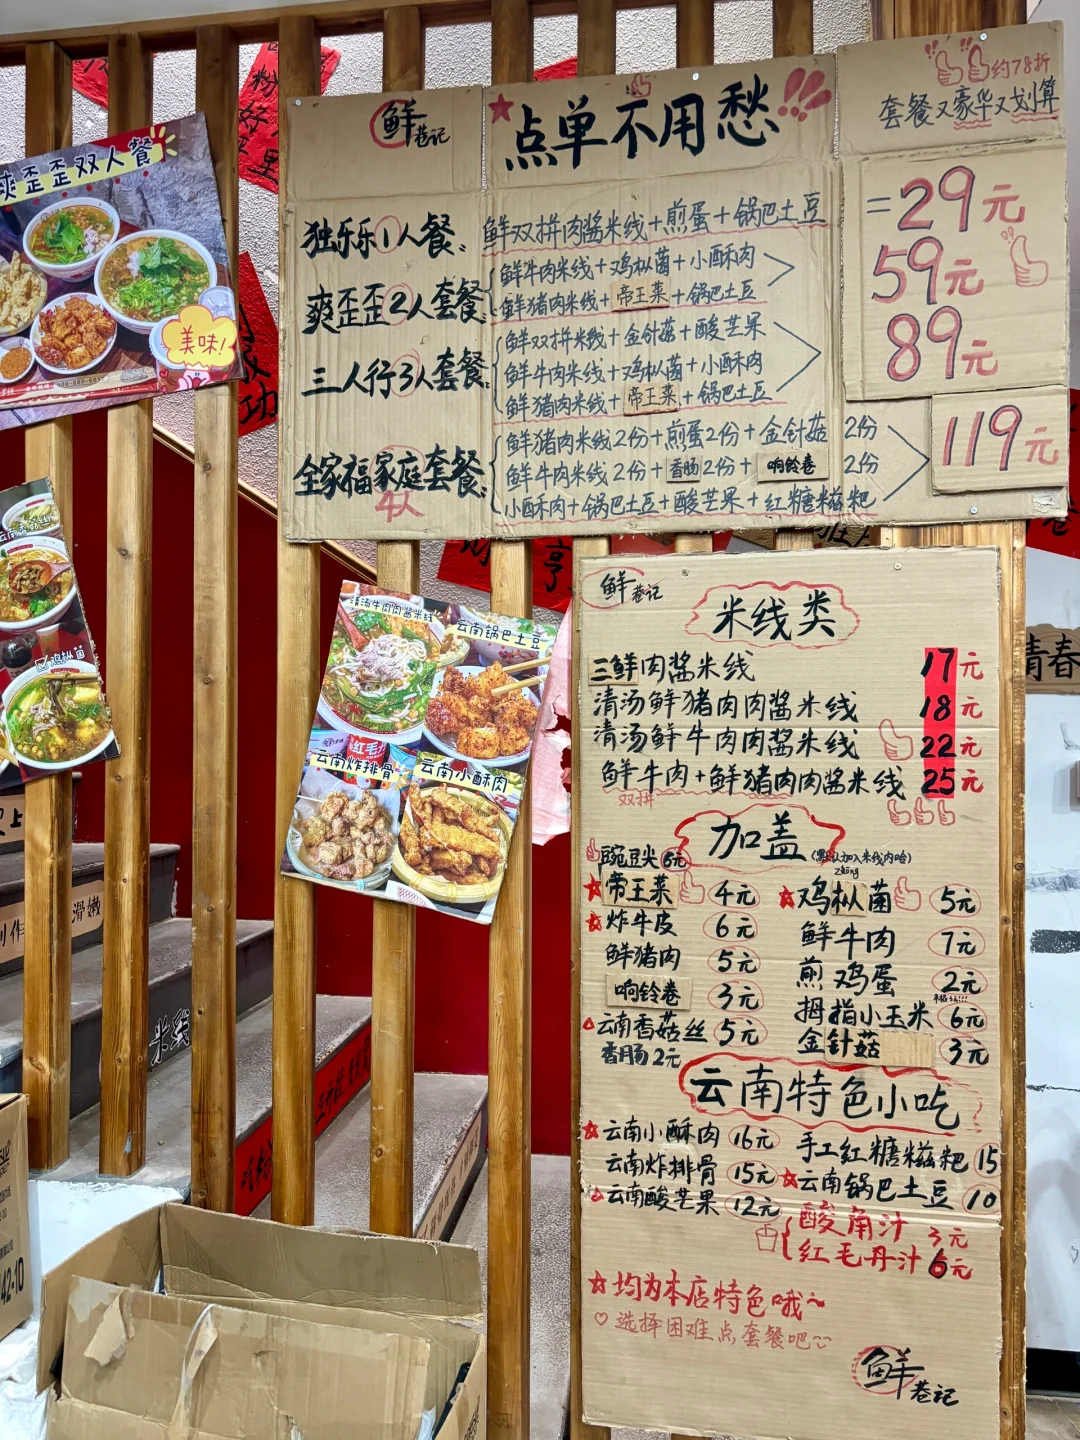 鲜巷记
点单不用愁!!!
约78折
套餐又豪华又划算
独乐乐1人餐: 鲜双拼肉酱米线+煎蛋+锅巴土豆 =29元
爽歪歪2人套餐: 鲜牛肉米线+鸡枞菌+小酥肉 59元
鲜猪肉米线+帝王菜+锅巴土豆
三人行3人套餐: 鲜双拼米线+金针菇+酸芒果 89元
鲜牛肉米线+鸡枞菌+小酥肉
鲜猪肉米线+帝王菜+锅巴土豆
全家福家庭套餐: 鲜猪肉米线2份+煎蛋2份+金针菇2份 119元
4人 鲜牛肉米线2份+香肠2份+响铃卷2份
小酥肉+锅巴土豆+酸芒果+红糖糍粑
鲜巷记
米线类
三鲜肉酱米线 17元
清汤鲜猪肉肉酱米线 18元
清汤鲜牛肉肉酱米线 22元
鲜牛肉+鲜猪肉肉酱米线 25元
双拼
加盖(默认加入米线内哈)
豌豆尖 6元
帝王菜 4元
炸牛皮 6元
鲜猪肉 5元
响铃卷 3元
云南香菇丝 5元
香肠2元
zōng
鸡枞菌 5元
鲜牛肉 7元
煎鸡蛋 2元
拇指小玉米 6元
金针菇 3元
云南特色小吃
云南小酥肉 16元
云南炸排骨 15元
云南酸芒果 12元
手工红糖糍粑 15
云南锅巴土豆 10
酸角汁 3元
红毛丹汁 6元
☆均为本店特色哦~
♡选择困难点套餐吧~
鲜巷记
爽歪歪双人餐
美味!
鸡枞菌
清汤牛肉肉酱米线
云南锅巴土豆
云南炸排骨
云南小酥肉
滑嫩
米线
青春
42-10